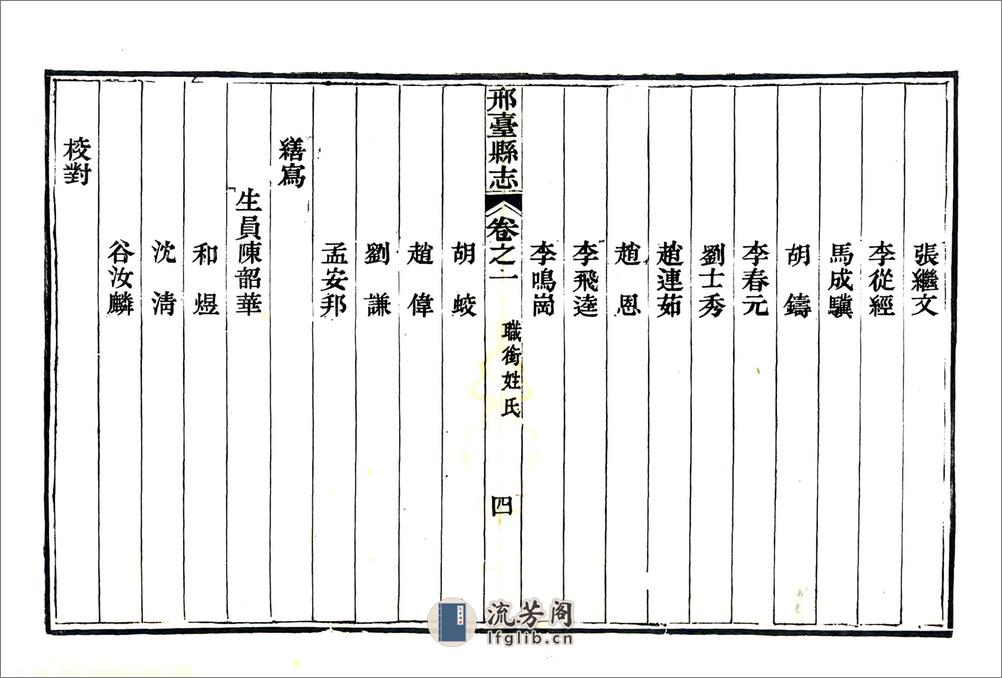 張繼文
李從經
馬成驥
胡鑄
李春元
劉士秀
趙連茹
趙恩
李飛逵
李鳴崗
邢臺縣志 卷之一 職銜姓氏 四
胡蛟
趙偉
劉謙
孟安邦
繕寫
生員陳韶華
和煜
沈淸
谷汝麟
校對
流芳阁
lfglib.cn